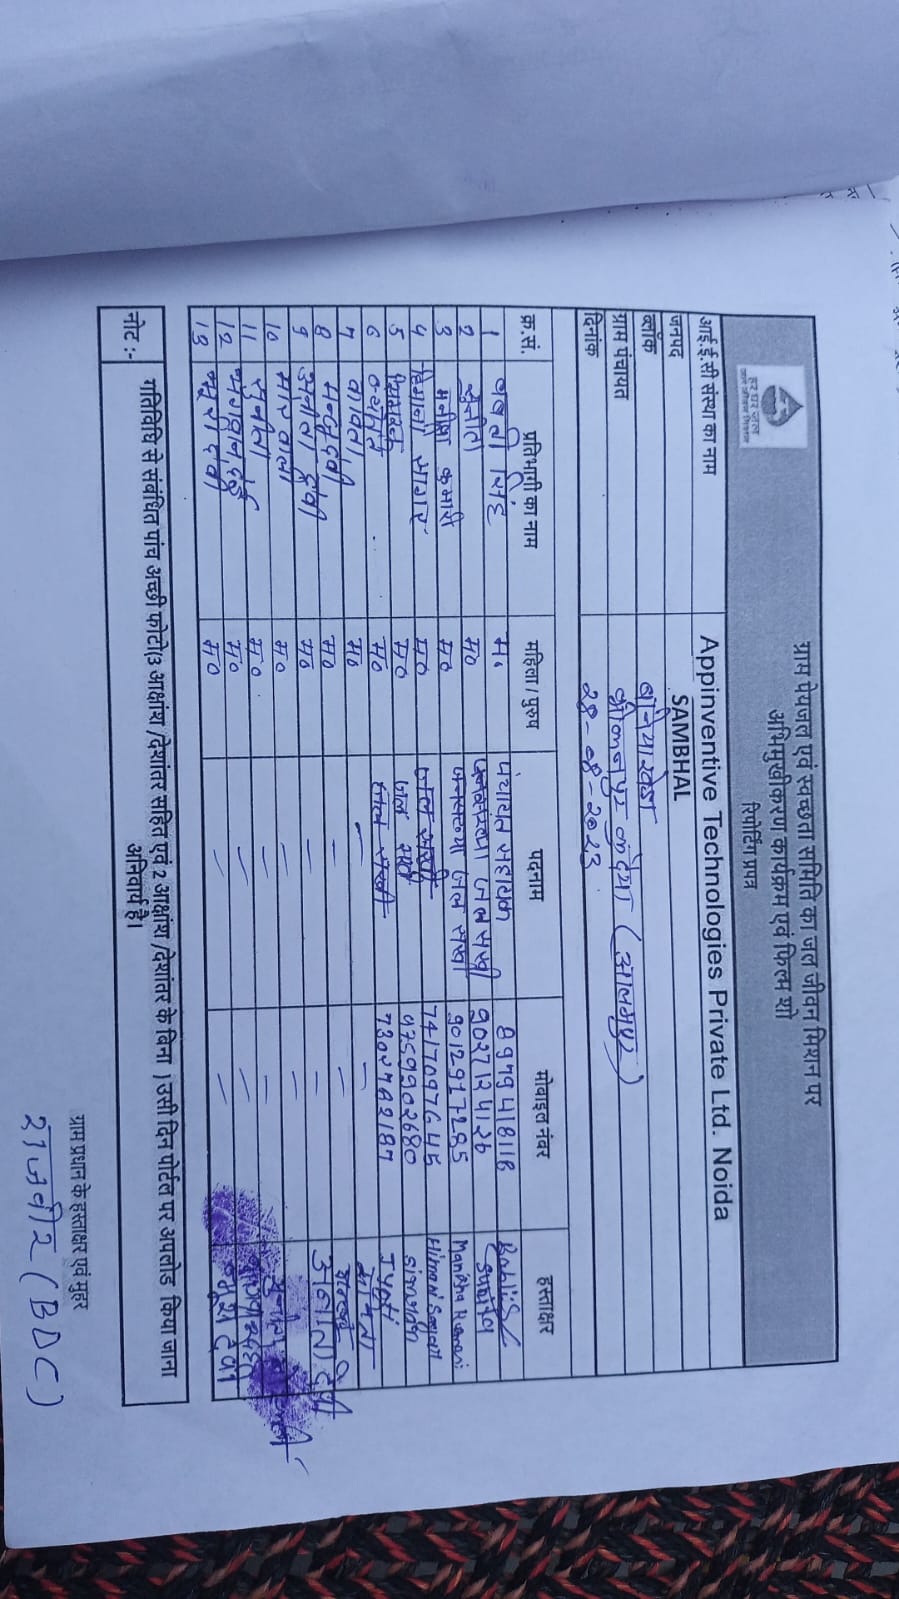 ग्राम पेयजल एवं स्वच्छता समिति का जल जीवन मिशन पर
अभिमुखीकरण कार्यक्रम एवं फिल्म शो
रिपोर्टिंग प्रपत्र
हर घर जल
आई.ई.सी संस्था का नाम Appinventive Technologies Private Ltd. Noida
जनपद SAMBHAL
ब्लॉक बनियाखेडा
ग्राम पंचायत (आलमपुर)
दिनांक 28-08-2023
क्र.सं. प्रतिभागी का नाम महिला / पुरुष पदनाम मोबाइल नंबर हस्ताक्षर
1 बबली सिंह म. पंचायत सहायक 8979418118
2 सुनीता म० जल सखी 9027124126 Sunita
3 मनीषा कुमारी म० जल सखी 9012917285 Manisha Kumari
4 हिमानी सागर म० जल सखी 7417097645 Himani Sagar
5 सिमरन म० जल सखी 9759902680 Simran
6 म० जल सखी 7302762187 Jyoti
7 कविता म० — —
8 मन्जू देवी म० — —
9 अनीता देवी म० — — अनीता देवी
10 माया वती म० — —
11 सुनीता म० — — सुनीता
12 भगवान देई म० — —
13 म० — —
नोट :- गतिविधि से संबंधित पांच अच्छी फोटो(3 आक्षांश /देशांतर सहित एवं 2 आक्षांश /देशांतर के बिना ) उसी दिन पोर्टल पर अपलोड किया जाना
अनिवार्य है।
ग्राम प्रधान के हस्ताक्षर एवं मुहर
राजवीर (BDC)